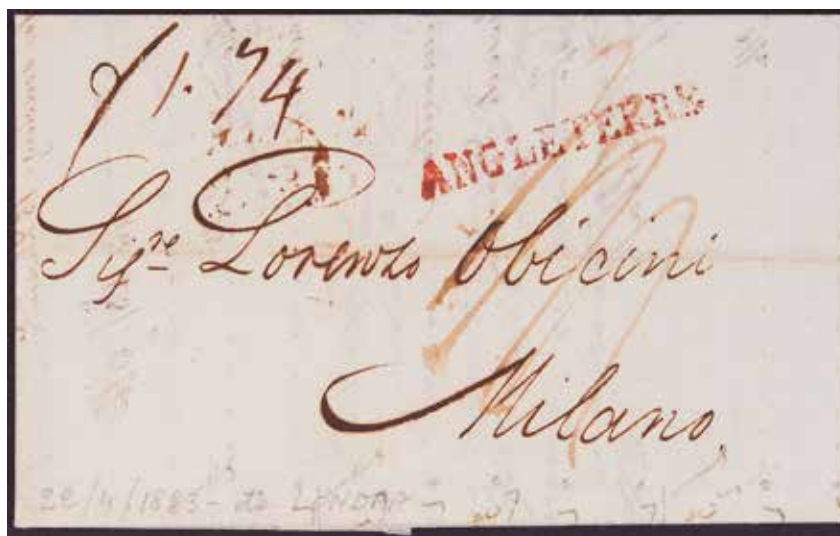 1.74
ANGLETERRE
Sig.re Lorenzo Obicini
Milano
/4/1883 - da LONDRA